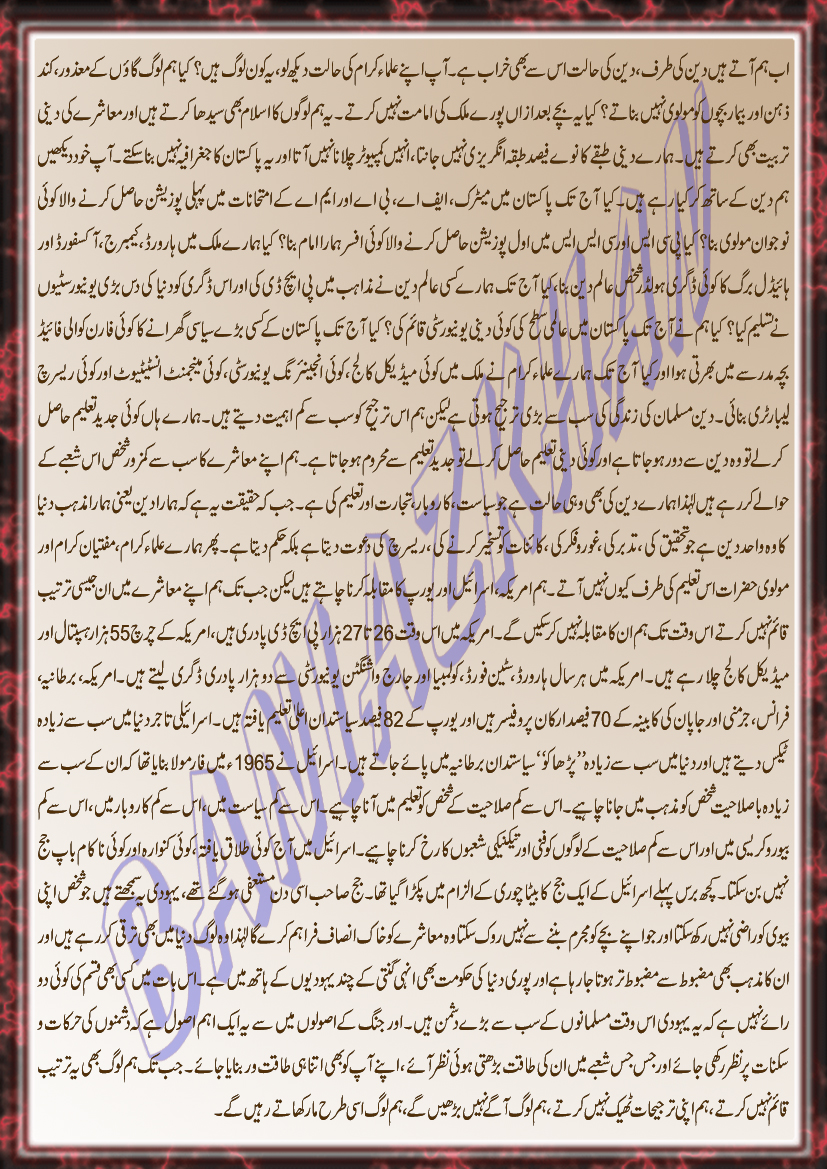 اب ہم آتے ہیں دین کی طرف، دین کی حالت اس سے بھی خراب ہے۔ آپ اپنے علماء کرام کی حالت دیکھ لو، یہ کون لوگ ہیں؟ کیا ہم لوگ گاؤں کے معذور، کند
ذہن اور بیمار بچوں کو مولوی نہیں بناتے؟ کیا یہ بچے بعد ازاں پورے ملک کی امامت نہیں کرتے۔ یہ ہم لوگوں کا اسلام بھی سیدھا کرتے ہیں اور معاشرے کی دینی
تربیت بھی کرتے ہیں۔ ہمارے دینی طبقے کا نوے فیصد طبقہ انگریزی نہیں جانتا، انہیں کمپیوٹر چلانا نہیں آتا اور یہ پاکستان کا جغرافیہ نہیں بنا سکتے۔ آپ خود دیکھیں
ہم دین کے ساتھ کر کیا رہے ہیں۔ کیا آج تک پاکستان میں میٹرک، ایف اے، بی اے اور ایم اے کے امتحانات میں پہلی پوزیشن حاصل کرنے والا کوئی
نوجوان مولوی بنا؟ کیا پی سی ایس اور سی ایس ایس میں اول پوزیشن حاصل کرنے والا کوئی افسر ہمارا امام بنا؟ کیا ہمارے ملک میں ہارورڈ، کیمبرج، آکسفورڈ اور
ہائیڈل برگ کا کوئی ڈگری ہولڈر شخص عالم دین بنا، کیا آج تک ہمارے کسی عالم دین نے مذاہب میں پی ایچ ڈی کی اور اس ڈگری کو دنیا کی دس بڑی یونیورسٹیوں
نے تسلیم کیا؟ کیا ہم نے آج تک پاکستان میں عالمی سطح کی کوئی دینی یونیورسٹی قائم کی؟ کیا آج تک پاکستان کے کسی بڑے سیاسی گھرانے کا کوئی فارن کوالی فائیڈ
بچہ مدرسے میں بھرتی ہوا اور کیا آج تک ہمارے علماء کرام نے ملک میں کوئی میڈیکل کالج، کوئی انجینئرنگ یونیورسٹی، کوئی مینجمنٹ انسٹیٹیوٹ اور کوئی ریسرچ
لیبارٹری بنائی۔ دین مسلمان کی زندگی کی سب سے بڑی ترجیح ہوتی ہے لیکن ہم اس ترجیح کو سب سے کم اہمیت دیتے ہیں۔ ہمارے ہاں کوئی جدید تعلیم حاصل
کر لے تو وہ دین سے دور ہو جاتا ہے اور کوئی دینی تعلیم حاصل کر لے تو جدید تعلیم سے محروم ہو جاتا ہے۔ ہم اپنے معاشرے کا سب سے کمزور شخص اس شعبے کے
حوالے کر رہے ہیں لہٰذا ہمارے دین کی بھی وہی حالت ہے جو سیاست، کاروبار، تجارت اور تعلیم کی ہے۔ جب کہ حقیقت یہ ہے کہ ہمارا دین یعنی ہمارا مذہب دنیا
کا وہ واحد دین ہے جو تحقیق کی، تدبر کی، غور و فکر کی، کائنات کو تسخیر کرنے کی، ریسرچ کی دعوت دیتا ہے بلکہ حکم دیتا ہے۔ پھر ہمارے علماء کرام، مفتیان کرام اور
مولوی حضرات اس تعلیم کی طرف کیوں نہیں آتے۔ ہم امریکہ، اسرائیل اور یورپ کا مقابلہ کرنا چاہتے ہیں لیکن جب تک ہم اپنے معاشرے میں ان جیسی ترتیب
قائم نہیں کرتے اس وقت تک ہم ان کا مقابلہ نہیں کر سکیں گے۔ امریکہ میں اس وقت 26 تا 27 ہزار پی ایچ ڈی پادری ہیں، امریکہ کے چرچ 55 ہزار ہسپتال اور
میڈیکل کالج چلا رہے ہیں۔ امریکہ میں ہر سال ہارورڈ، سٹین فورڈ، کولمبیا اور جارج واشنگٹن یونیورسٹی سے دو ہزار پادری ڈگری لیتے ہیں۔ امریکہ، برطانیہ،
فرانس، جرمنی اور جاپان کی کابینہ کے 70 فیصد ارکان پروفیسر ہیں اور یورپ کے 82 فیصد سیاستدان اعلیٰ تعلیم یافتہ ہیں۔ اسرائیلی تاجر دنیا میں سب سے زیادہ
ٹیکس دیتے ہیں اور دنیا میں سب سے زیادہ ’’پڑھاکو‘‘ سیاستدان برطانیہ میں پائے جاتے ہیں۔ اسرائیل نے 1965ء میں فارمولا بنایا تھا کہ ان کے سب سے
زیادہ باصلاحیت شخص کو مذہب میں جانا چاہیے۔ اس سے کم صلاحیت کے شخص کو تعلیم میں آنا چاہیے۔ اس سے کم سیاست میں، اس سے کم کاروبار میں، اس سے کم
بیوروکریسی میں اور اس سے کم صلاحیت کے لوگوں کو فنی اور ٹیکنیکی شعبوں کا رخ کرنا چاہیے۔ اسرائیل میں آج کوئی طلاق یافتہ، کوئی کنوارہ اور کوئی ناکام باپ جج
نہیں بن سکتا۔ کچھ برس پہلے اسرائیل کے ایک جج کا بیٹا چوری کے الزام میں پکڑا گیا تھا۔ جج صاحب اسی دن مستعفی ہو گئے تھے، یہودی یہ سمجھتے ہیں جو شخص اپنی
بیوی کو راضی نہیں رکھ سکتا اور جو اپنے بچے کو مجرم بننے سے نہیں روک سکتا وہ معاشرے کو خاک انصاف فراہم کرے گا لہٰذا وہ لوگ دنیا میں بھی ترقی کر رہے ہیں اور
ان کا مذہب بھی مضبوط سے مضبوط تر ہوتا جا رہا ہے اور پوری دنیا کی حکومت بھی انہی گنتی کے چند یہودیوں کے ہاتھ میں ہے۔ اس بات میں کسی بھی قسم کی کوئی دو
رائے نہیں ہے کہ یہ یہودی اس وقت مسلمانوں کے سب سے بڑے دشمن ہیں۔ اور جنگ کے اصولوں میں سے یہ ایک اہم اصول ہے کہ دشمنوں کی حرکات و
سکنات پر نظر رکھی جائے اور جس جس شعبے میں ان کی طاقت بڑھتی ہوئی نظر آئے، اپنے آپ کو بھی اتنا ہی طاقت ور بنایا جائے۔ جب تک ہم لوگ بھی یہ ترتیب
قائم نہیں کرتے، ہم اپنی ترجیحات ٹھیک نہیں کرتے، ہم لوگ آگے نہیں بڑھیں گے، ہم لوگ اسی طرح مار کھاتے رہیں گے۔